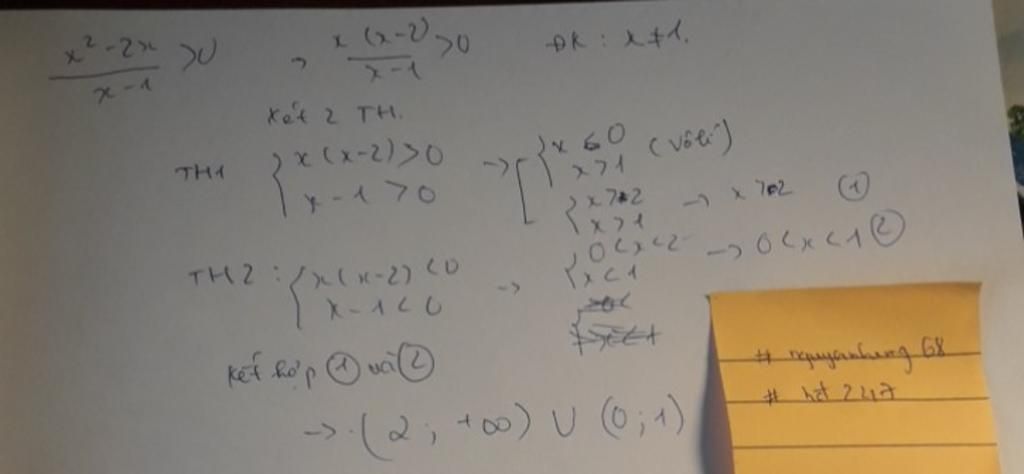 x² - 2x / x - 1 > 0 → x (x-2) / x - 1 > 0 ĐK : x ≠ 1.
Xét 2 TH.
TH1 { x (x-2) > 0 → [ { x < 0 (Vô lí)
x - 1 > 0 x > 1
{ x > 2 → x > 2 (1)
x > 1
TH2 : { x (x-2) < 0 → { 0 < x < 2 → 0 < x < 1 (2)
x - 1 < 0 x < 1
Kết hợp (1) và (2)
→ (2 ; +∞) ∪ (0 ; 1)
# nguyenhung 68
# hst 247